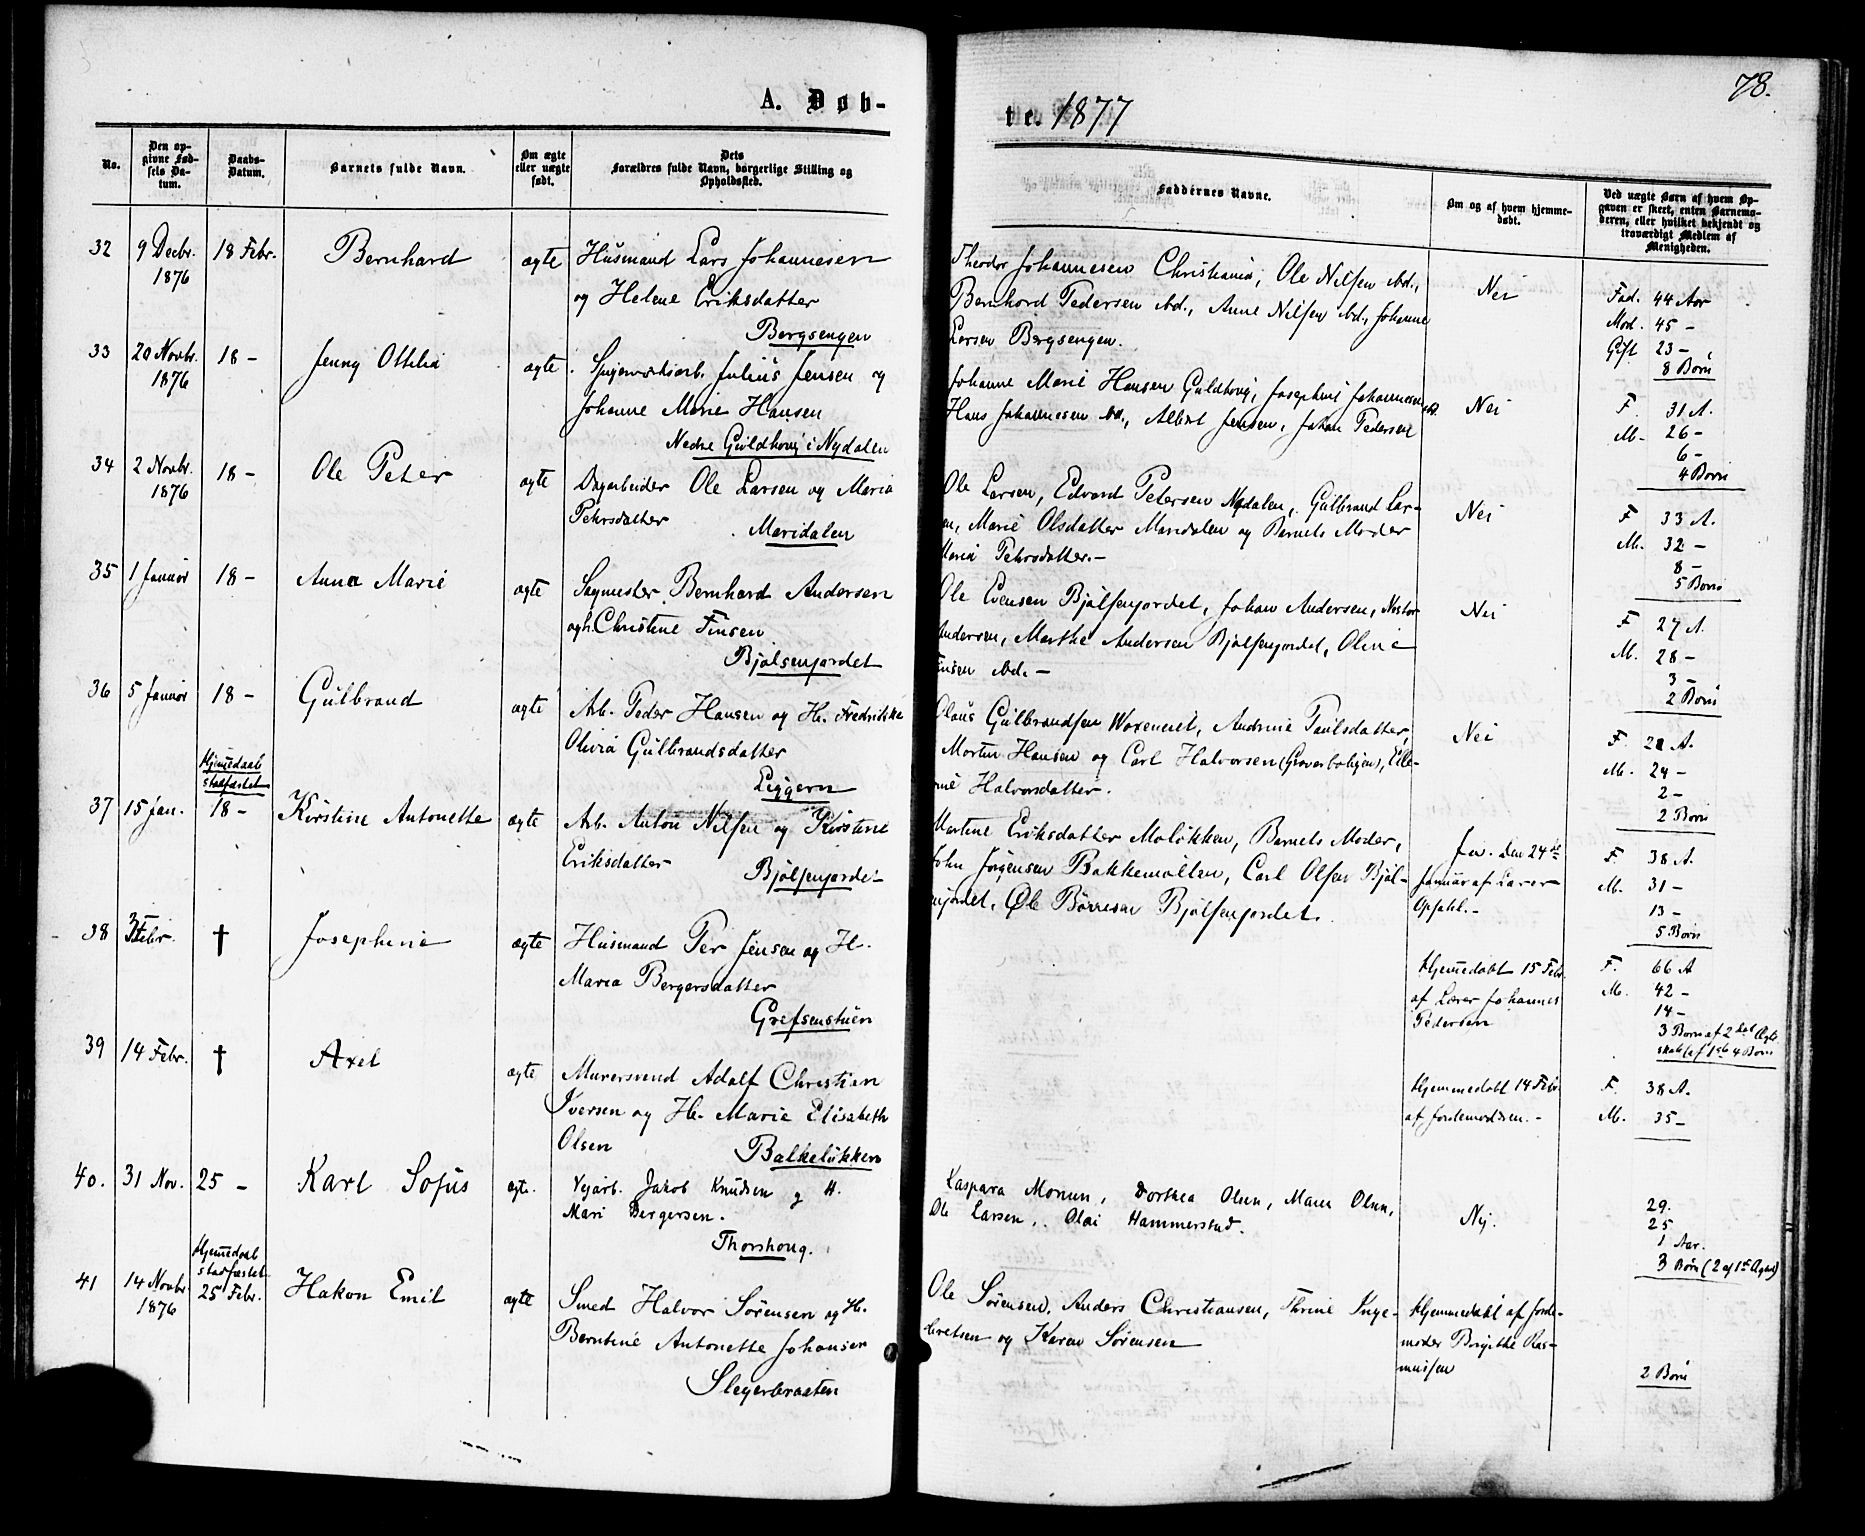 78.
A. Døb-
te. 1877
No.
Den op-
givne Fød-
sels Da-
tum.
Daabs-
Datum.
Barnets fulde Navn.
Om ægte
eller uægte
født.
Dets
Forældres fulde Navn, borgerlige Stilling og
Opholdssted.
Faddernes Navne.
Om og af hvem hjemme-
døbt.
Ved uægte Børn af hvem Op-
gaven er skeet, enten Barnemo-
deren, eller hvilket bekjendt og
troværdigt Medlem af
Menigheden.
32
9 Decbr.
1876
18 Febr.
Bernhard
ægte
Husmand Lars Johannesen
og Helene Eriksdatter
Bergsengen
Theodor Johannesen Christiania, Ole Nilsen ibd.,
Bernhard Pedersen ibd., Anne Nilsen ibd., Johanne
Larsen Bergsengen.
Nei
Fad. 44 Aar
Mod. 45 -
Gift 23 -
8 Børn
33
20 Novbr.
1876
18 -
Jenny Othilia
ægte
Julius Jensen og
Johanne Marie Hansen
Nedre Guldhoug i Nydalen
Johanne Marie Hansen Guldhoug, Josephine Johannesen ibd.
Hans Johannesen ibd., Albert Jensen, Johan Pedersen
Nei
F. 31 A.
M. 26 -
6 -
4 Børn
34
2 Novbr.
1876
18 -
Ole Peter
ægte
Dagarbeider Ole Larsen og Maria
Pehrsdatter
Maridalen
Ole Larsen, Edvard Petersen Nydalen, Gulbrand Lar-
en, Marie Olsdatter Maridalen og Barnets Moder
Maria Pehrsdatter. -
Nei
F 33 A.
M. 32 -
8 -
5 Børn
35
1 Januar
18 -
Anna Marie
ægte
Sagmester Bernhard Andersen
og h. Christine Finsen
Bjølsenjordet
Ole Evensen Bjølsenjordet, Johan Andersen,
Andersen, Marthe Andersen Bjølsenjordet, Oline
Finsen ibd. -
Nei
F 27 A.
M. 28 -
3 -
2 Børn
36
5 Januar
18 -
Gulbrand
ægte
Arb. Peder Hansen og H. Fredrikke
Olivia Gulbrandsdatter
Liggern
Claus Gulbrandsen Voxeneiet, Andrine Paulsdatter,
Morten Hansen og Carl Halvorsen (Graverboligen), Elle-
ne Halvorsdatter.
Nei
F. 21 A.
M. 24 -
2 -
2 Børn
37
15 Jan.
Hjemedaab
stadfæstet
18 -
Kirstine Antonette
ægte
Arb. Anton Nilsen og Kirstine
Eriksdatter
Bjølsenjordet
Martine Eriksdatter Moløkken, Barnets Moder,
John Jørgensen Bakkemøllen, Carl Olsen Bjøl-
enjordet, Ole Børresen Bjølsenjordet.
Ja. den 24de
Januar af Lærer
Opsahl. -
F. 38 A.
M. 31 -
13 -
5 Børn
38
3 Febr.
†
Josephine
ægte
Husmand Per Jensen og H.
Maria Bergersdatter
Grefsenstuen
Hjemedøbt 15 Febr.
af Lærer Johannes
Pedersen
F. 66 A
M. 42 -
14 -
3 Børn af 2det Ægte
skab (af 1ste 4 Børn
39
14 Febr.
†
Axel
ægte
Murersvend Adolf Christian
Iversen og H. Marie Elisabeth
Olsen
Balkeløkken
Hjemmedøbt 14 Febr
af Jordemoderen. -
F. 38 A.
M. 35 -
40.
31 Nov.
25 -
Karl Sofus
ægte.
Vejarb. Jakob Knudsen og H.
Mari Bergersen.
Thorshoug.
Kaspara Monsen, Dorthea Olsen, Maren Olsen,
Ole Larsen, Olai Hammerstad.
Nej.
29.
25
1 Aar.
3 Børn (2 af 1ste Ægtes)
41
14 Novbr.
1876
Hjemedaab
stadfæstet.
25 Febr.
Hakon Emil
ægte
Smed Halvor Sørensen og H.
Berntine Antonette Johansen
Slegerbraaten
Ole Sørensen, Anders Christiansen, Thrine Inge-
bretsen og Karen Sørensen
Hjemmedøbt af Jorde-
moder Birgithe Ras-
mussen
2 Børn